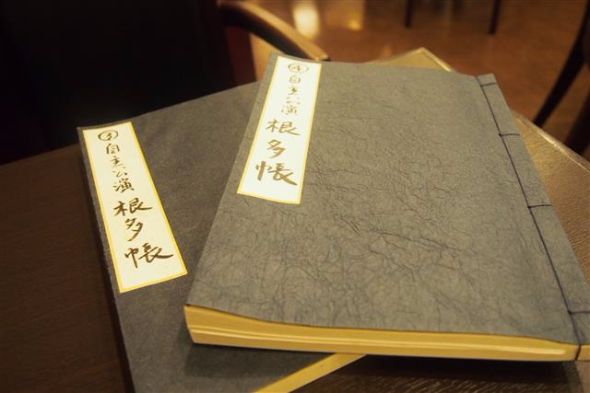 ④自主公演 根多帳
自主公演 根多帳